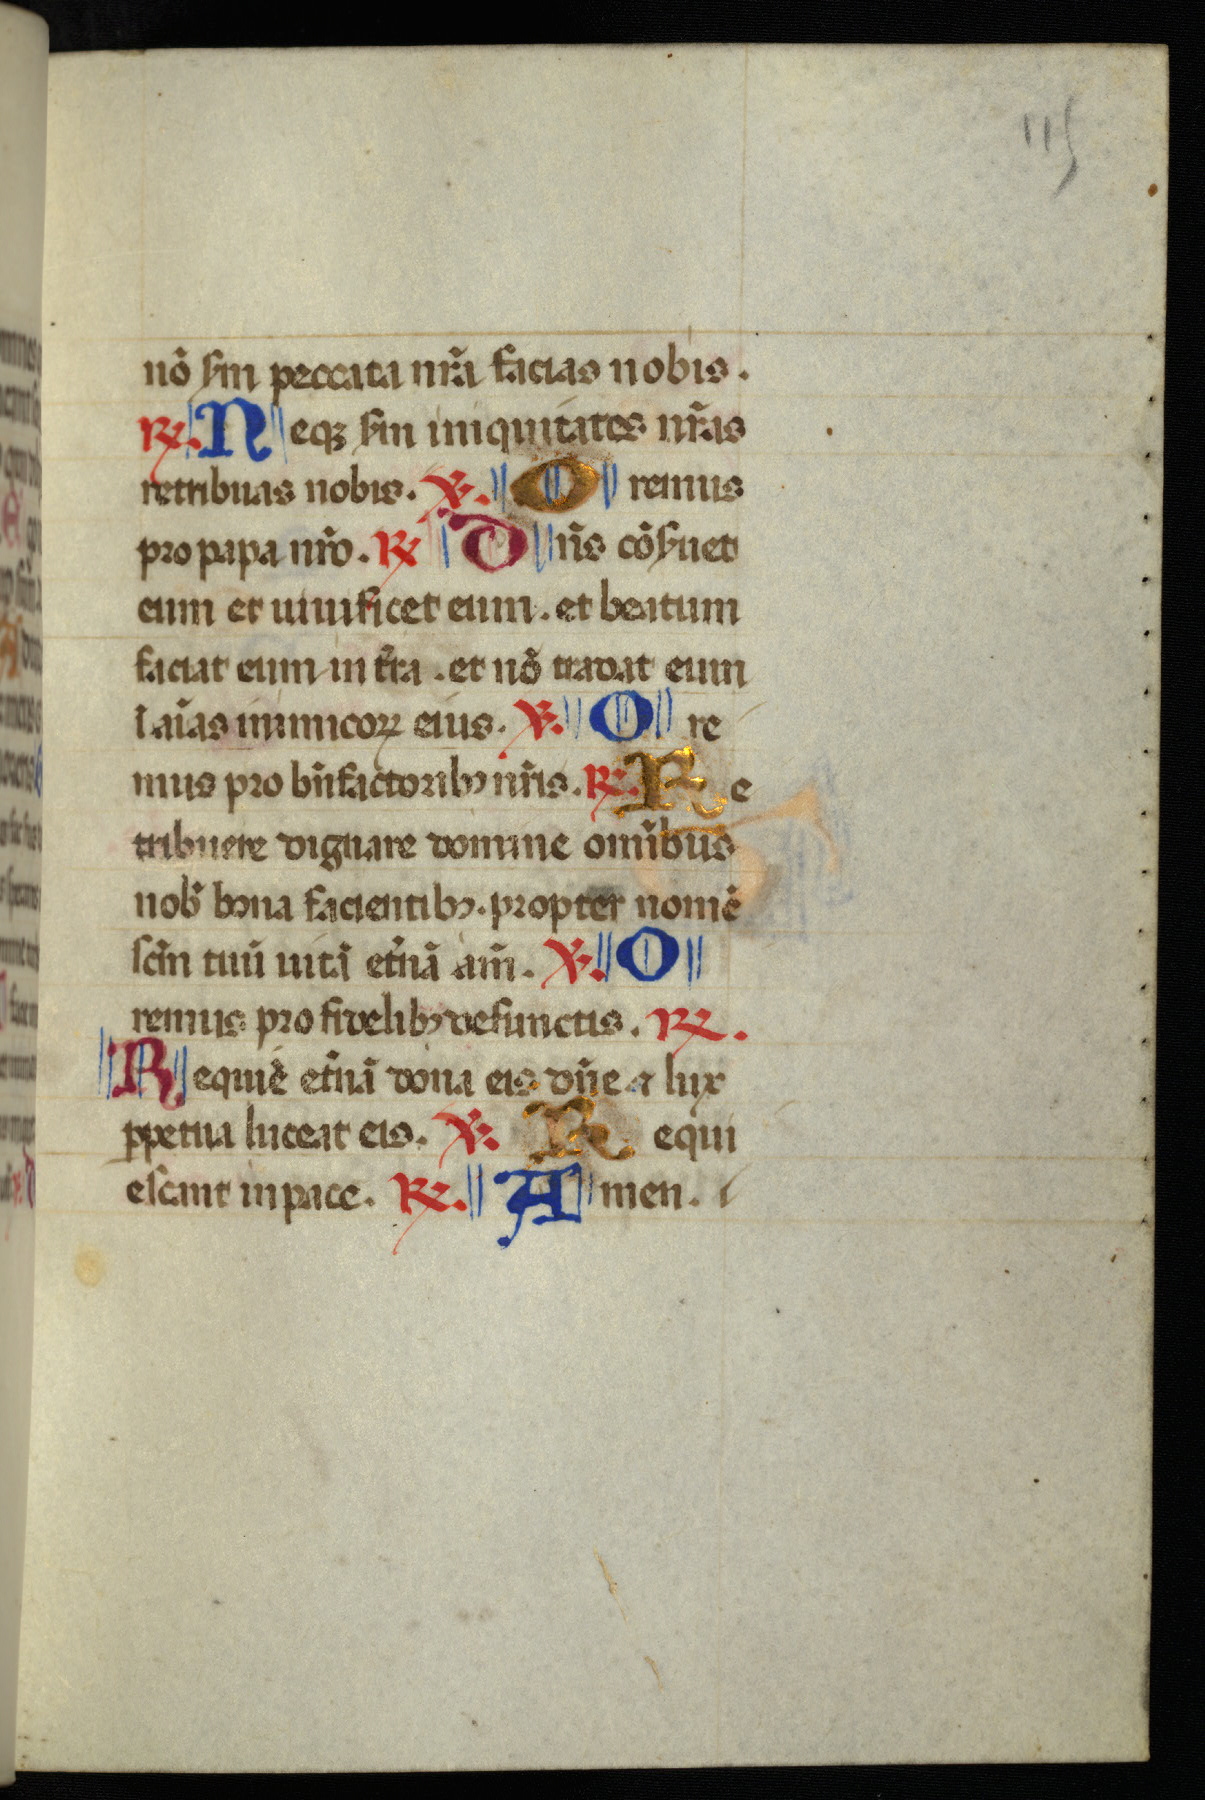 115
nō sm̄ peccata nr̄a facias nobis.
℟. Neqꝫ sm̄ iniquitates nr̄as
retribuas nobis. ℣. Oremus
pro papa nr̄o. ℟ Dn̄s cōẜuet
eum et uiuificet eum. et beatum
faciat eum in tr̄a. et nō tradat eum
ī aīas inimicoꝝ eius. ℣. Ore
mus pro bn̄factoribꝫ nr̄is. ℟. Re
tribuere dignare domine omībus
nob̄ bona facientibꝫ. propter nomē
scm̄ tuū uitā etn̄ā am̄. ℣. O
remus pro fidelibꝫ defunctis. ℟.
Requiē etn̄ā dona eis dn̄e ⁊ lux
ꝑpetua luceat eis. ℣. Requi
escant in pace. ℟. Amen.